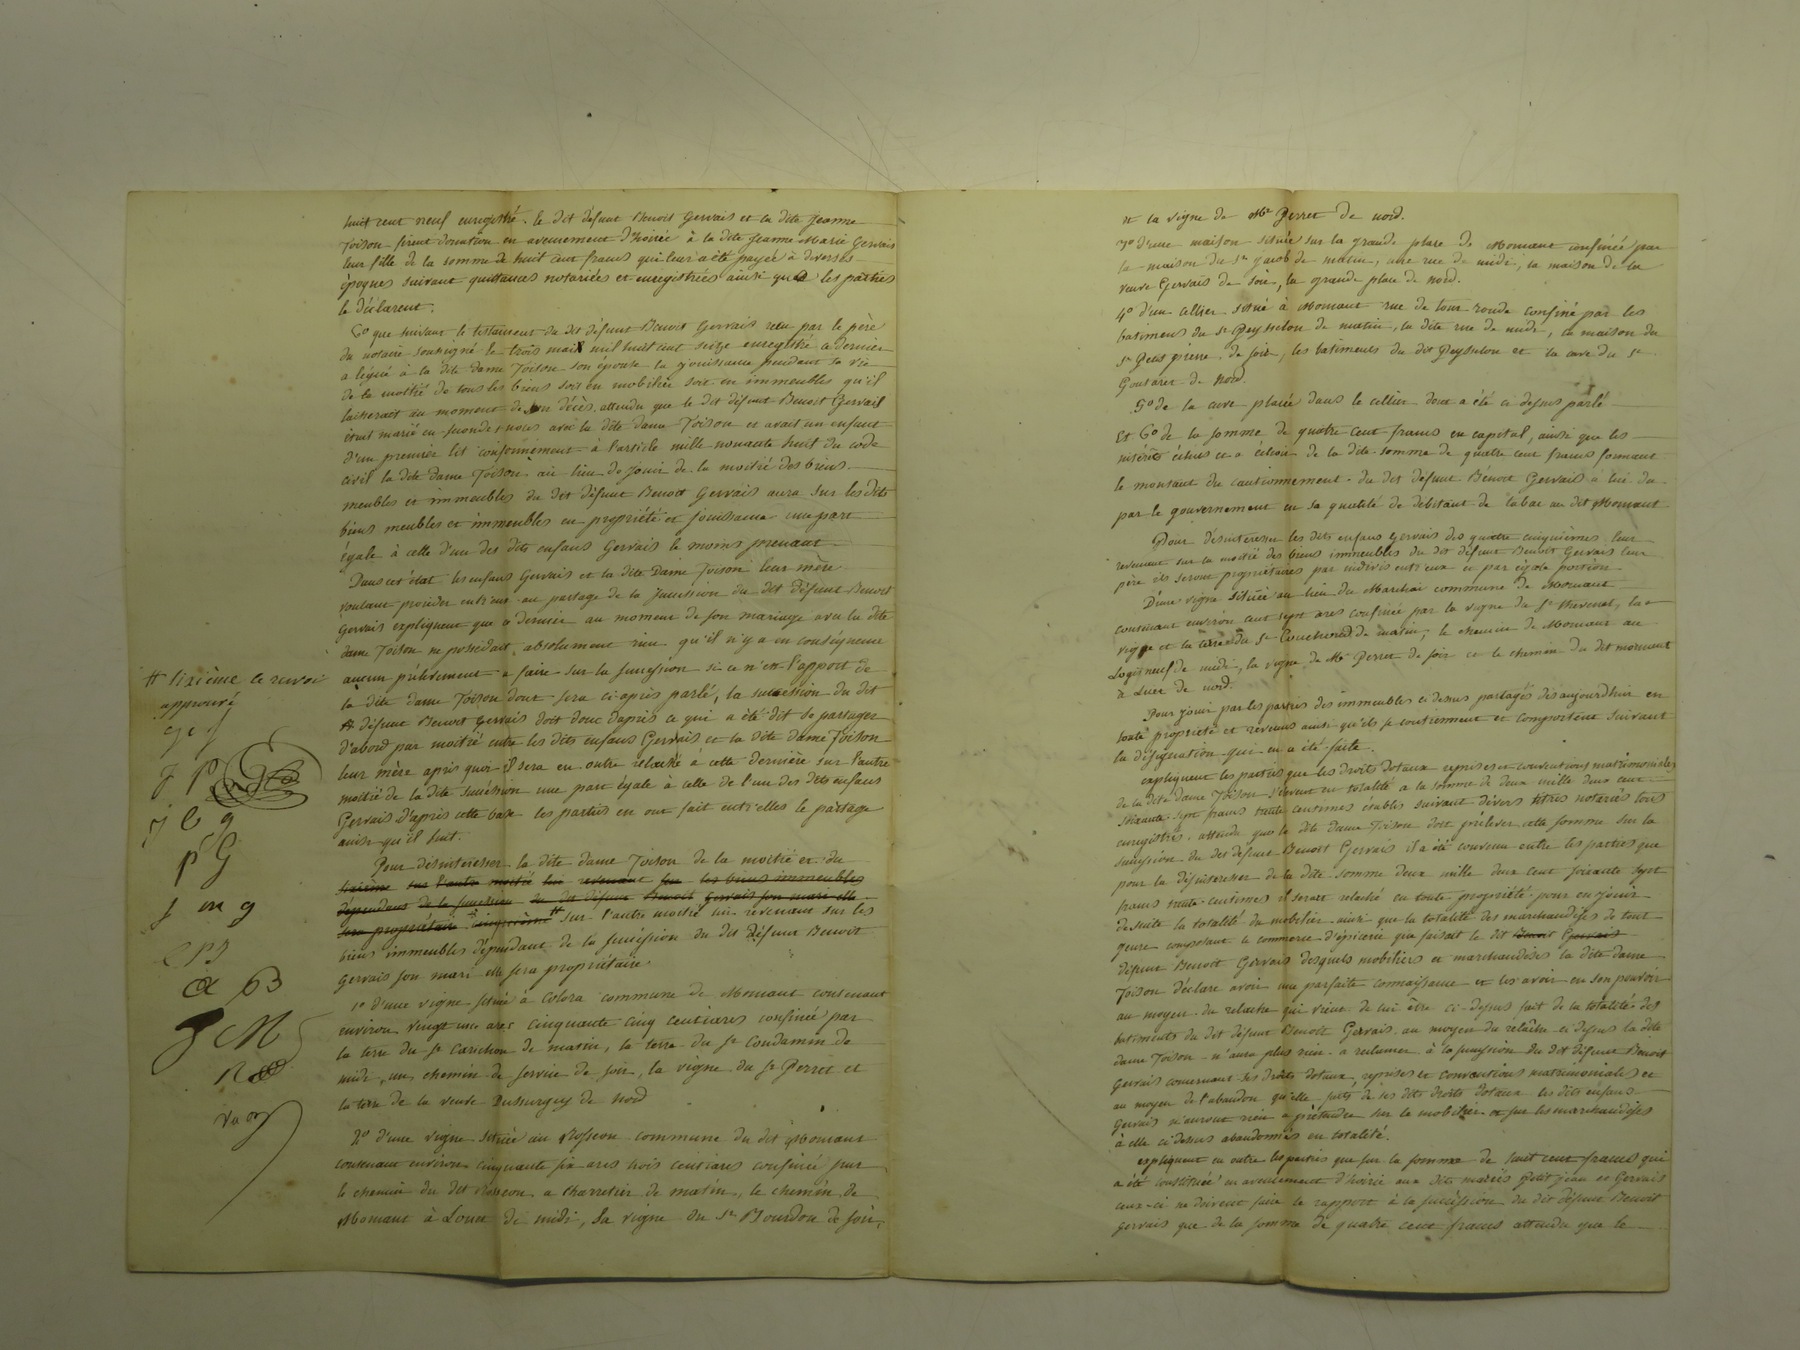 huit cent neuf enregistré. le dit défunt Benoit Gervais et la dite Jeanne
Toison firent donation en avencement d'hoirée à la dite Jeanne Marie Gervais
leur fille de la somme de huit cent francs qui leur a été payée à diverses
époques suivant quittances notariées et enregistrées ainsi que les parties
le déclarent.
6° que suivant le testament du dit défunt Benoit Gervais reçu par le père
du notaire soussigné le trois mai mil huit cent seize enregistré ce dernier
a légué à la dite dame Toison son épouse la jouissance pendant sa vie
de la moitié de tous les biens soit en mobilier soit en immeubles qu'il
laisserait au moment de son décès. attendu que le dit défunt Benoit Gervais
était marié en secondes noces avec la dite dame Toison et avait un enfant
d'un premier lit conformément à l'article mille nonante huit du code
civil la dite dame Toison au lieu de jouir de la moitié des biens
meubles et immeubles du dit défunt Benoit Gervais aura sur les dits
biens meubles et immeubles en propriété et jouissance une part
égale à celle d'un des dits enfans Gervais le moins prenant
Dans cet état les enfans Gervais et la dite Dame Toison leur mère
voulant procéder entr'eux au partage de la succession du dit défunt Benoit
Gervais expliquent que ce dernier au moment de son mariage avec la dite
dame Toison ne possedait absolument rien qu'il n'y a en conséquence
aucun prélèvement à faire sur la succession si ce n'est l'apport de
la dite dame Toison dont sera ci-après parlé, la succession du dit
# défunt Benoit Gervais doit donc d'après ce qui a été dit se partager
d'abord par moitié entre les dits enfans Gervais et la dite dame Toison
leur mère après quoi il sera en outre relaché à cette dernière sur l'autre
moitié de la dite succession une part égale à celle de l'un des dits enfans
Gervais D'après cette base les parties en ont fait entr'elles le partage
ainsi qu'il suit.
Pour désintéresser la dite dame Toison de la moitié et du
sixième sur l'autre moitié lui revenant sur les biens immeubles
dépendans de la succession du dit défunt Benoit Gervais son mari elle
sera propriétaire cinquième # sur l'autre moitié lui revenant sur les
biens immeubles dépendant de la succession du dit défunt Benoit
Gervais son mari elle sera propriétaire.
1° d'une vigne située à Colora commune de Mornant contenant
environ vingt un ares cinquante cinq centiares confinée par
la terre du Sr Carichon de matin, la terre du Sr Condamin de
midi, un chemin de service de soir, la vigne du Sr Perret et
la terre de la veuve Dussurgey de nord
2° d'une vigne située au Rosseon commune du dit Mornant
contenant environ cinquante six ares trois centiares confinée par
le chemin du dit Rosseon a charretier de matin, le chemin de
Mornant à de midi, la vigne du Sr Bourdon de soir,
# sixième ce renvoi
approuvé
J P
J B G
P G
J M G
J M
et la vigne de Mr Perret de nord.
3° d'une maison située sur la grande place de Mornant confinée par
la maison du Sr Jacob de matin, une rue de midi, la maison de la
veuve Gervais de soir, la grande place de nord.
4° d'un cellier situé à Mornant rue de tour ronde confiné par les
batimens du Sr Peysselon de matin, la dite rue de midi, la maison du
Sr Petit pierre de soir, les batiments du dit Peysselon et la cave du Sr
de Nord.
5° de la cuve placée dans le cellier dont a été ci dessus parlé
Et 6° de la somme de quatre cent francs en capital, ainsi que les
intérêts échus et à échoir de la dite somme de quatre cent francs formant
le montant du cautionnement du dit défunt Benoit Gervais à lui du
par le gouvernement en sa qualité de débitant de tabac au dit Mornant
Pour désintéresser les dits enfans Gervais des quatre cinquièmes leur
revenant sur la moitié des biens immeubles du dit défunt Benoit Gervais leur
père ils seront propriétaires par indivis entr'eux et par égale portion
D'une vigne située au lieu du commune de Mornant
contenant environ cent sept ares confinée par la vigne du Sr la
vigne et la terre du Sr de matin, le chemin de Mornant au
Logis neuf de midi, la vigne de Mr Perret de soir et le chemin du dit mornant
à de nord.
Pour jouir par les parties des immeubles ci dessus partagés dès aujourd'hui en
toute propriété et revenus ainsi qu'ils se contiennent et comportent suivant
la désignation qui en a été faite.
expliquent les parties que les droits dotaux reprises et conventions matrimoniales
de la dite dame Toison s'élèvent en totalité à la somme de deux mille deux cent
soixante sept francs trente centimes établis suivant divers titres notariés tous
enregistrés. attendu que la dite dame Toison doit prélever cette somme sur la
succession du dit défunt Benoit Gervais il a été convenu entre les parties que
pour la désintéresser de la dite somme deux mille deux cent soixante sept
francs trente centimes il serait relaché en toute propriété pour en jouir
de suite la totalité du mobilier ainsi que la totalité des marchandises de tout
genre composant le commerce d'épicerie que faisait le dit Benoit Gervais
défunt Benoit Gervais desquels mobiliers et marchandises la dite dame
Toison déclare avoir une parfaite connaissance et les avoir en son pouvoir
au moyen du relache qui vient de lui être ci-dessus fait de la totalité des
batiments du dit défunt Benoit Gervais. au moyen du relâche ci dessus la dite
dame Toison n'aura plus rien a réclamer à la succession du dit défunt Benoit
Gervais concernant ses droits dotaux, reprises et conventions matrimoniales et
au moyen de l'abandon qu'elle faits de ses dits droits dotaux les dits enfans
Gervais n'auront rien a prétendre sur le mobilier et sur les marchandises
à elle ci dessus abandonnés en totalité.
expliquent en outre les parties que sur la somme de huit cent francs qui
a été constituée en avencement d'hoirie aux dits mariés Petit jean et Gervais
ceux-ci ne doivent faire le rapport à la succession du dit défunt Benoit
Gervais que de la somme de quatre cent francs attendu que le